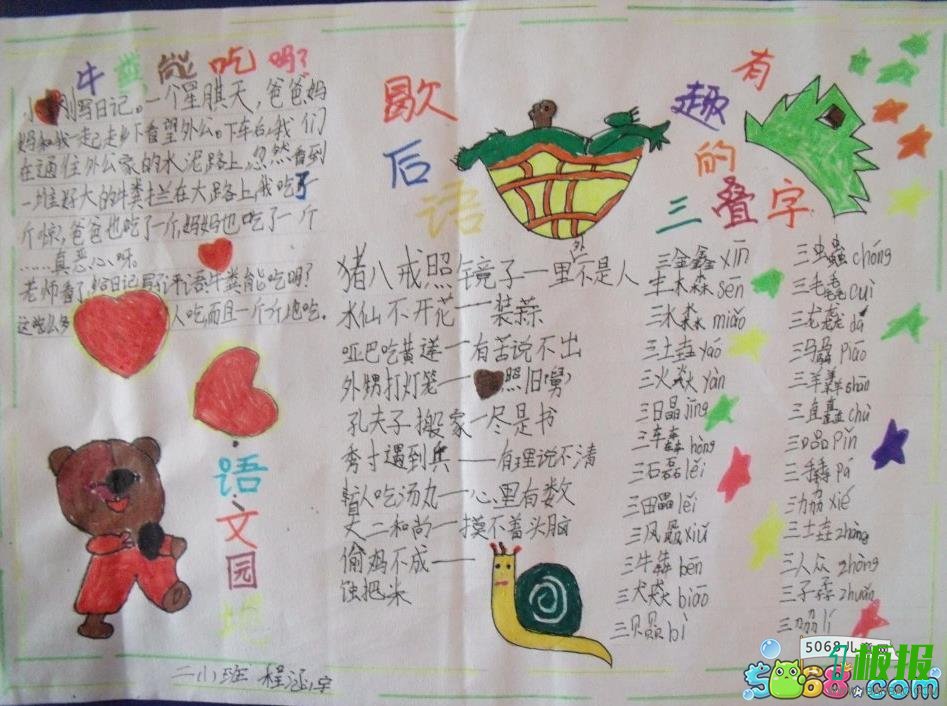 牛粪能吃吗?
小刚写日记。一个星期天,爸爸妈
妈和我一起走乡下看望外公。下车后,我们
在通往外公家的水泥路上,忽然看到
一堆好大的牛粪拦在大路上,我吃了
个惊,爸爸也吃了一个,妈妈也吃了一个
……真恶心呀。
老师看了,给日记写了评语:牛粪能吃吗?
这吃么多人吃,而且一个个地吃。
语文园地
二小班 程
歇后语
猪八戒照镜子—里外不是人
水仙不开花—装蒜
哑巴吃黄莲—有苦说不出
外甥打灯笼—照旧(舅)
孔夫子搬家—尽是书
秀才遇到兵—有理说不清
盲人吃汤丸—心里有数
丈二和尚—摸不着头脑
偷鸡不成—
蚀把米
有趣的三叠字
三金鑫xīn
三木森sēn
三水淼miǎo
三土垚yáo
三火焱yàn
三日晶jīng
三车轰hōng
三石磊lěi
三田畾lěi
三风飍xiū
三牛犇bēn
三犬猋biāo
三贝赑bì
三虫蟲chóng
三毛毳cuì
三龙龘dá
三马骉piāo
三羊羴shān
三直矗chù
三口品Pǐn
三手掱pá
三力劦xié
三土垚zhàng
三人众zhòng
三子孨zhuǎn
三刕lí
5068儿童网
板报
5068.com